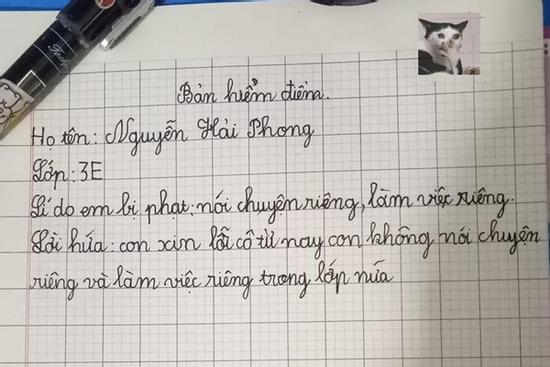 Bản hiểm điểm.
Họ tên: Nguyễn Hải Phong
Lớp: 3E
Lí do em bị phạt: nói chuyện riêng, làm việc riêng.
Lời hứa: con xin lỗi cô từ nay con không nói chuyện
riêng và làm việc riêng trong lớp nữa